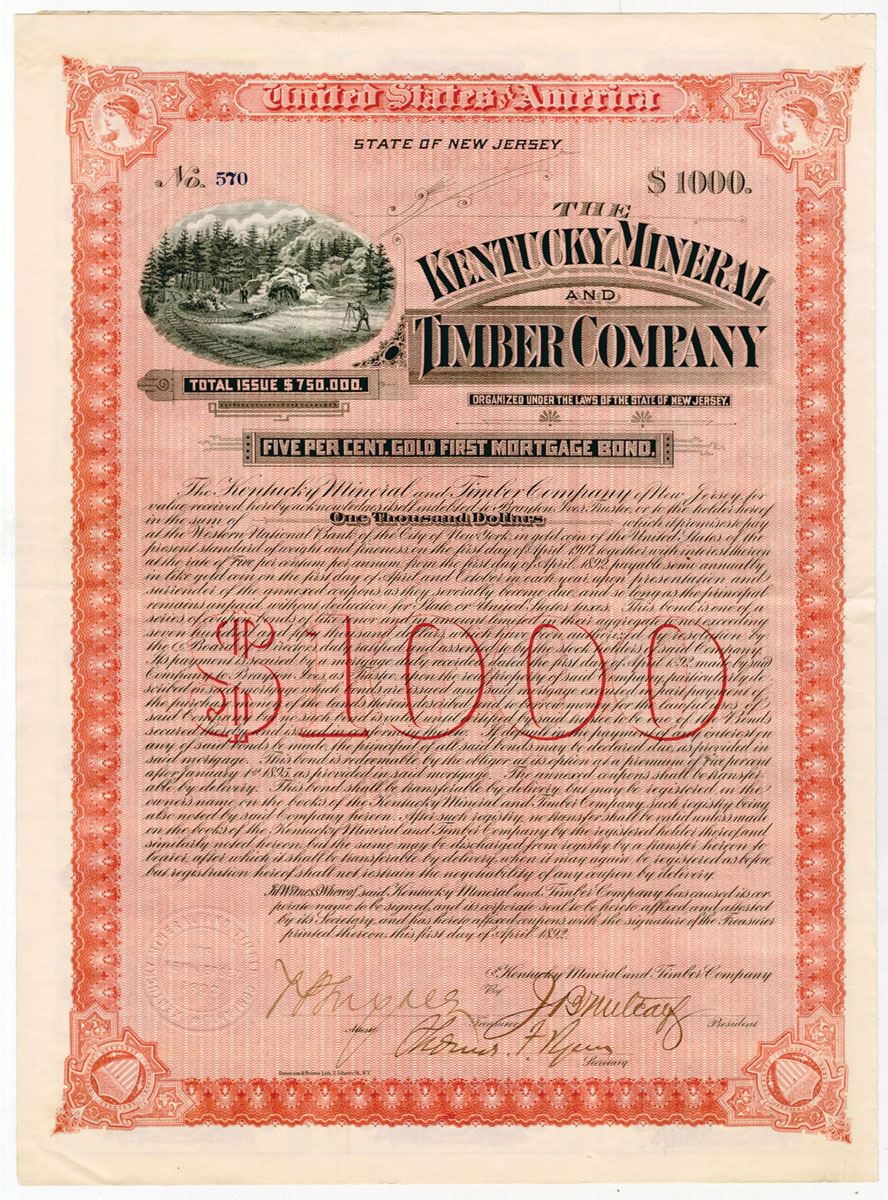 United States of America
STATE OF NEW JERSEY
No. 570
$1000.
THE
KENTUCKY MINERAL
AND
TIMBER COMPANY
TOTAL ISSUE $750.000.
ORGANIZED UNDER THE LAWS OF THE STATE OF NEW JERSEY.
FIVE PER CENT. GOLD FIRST MORTGAGE BOND.
The Kentucky Mineral and Timber Company of New Jersey for
value received hereby acknowledges itself indebted to Brayton Ives, Trustee, or to the holder hereof
in the sum of One Thousand Dollars which it promises to pay
at the Western National Bank of the City of New York in gold coin of the United States of the
present standard of weight and fineness on the first day of April 1907 together with interest thereon
at the rate of Five per centum per annum from the first day of April 1892 payable semi annually,
in like gold coin on the first day of April and October in each year upon presentation and
surrender of the annexed coupons as they severally become due, and so long as the principal
remains unpaid, without deduction for State or United States taxes. This bond is one of a
series of bonds of like and in amount limited in the aggregate not exceeding
seven hundred and fifty thousand dollars which have been authorized by resolution by
the Board of Directors duly and assented to by the stock holders of said Company.
Its payment is secured by a mortgage duly recorded dated the first day of April 1892 made by said
Company to Brayton Ives as Trustee upon the real property of said Company particularly de
scribed in said mortgage which bonds are issued and said mortgage executed in part payment of
the purchase money of the lands therein described and to money for the lawful uses of
said Company no bond is valid until certified by said Trustee to be one of the Bonds
secured If default in the payment of interest on
any of said bonds be made, the principal of all said bonds may be declared due, as provided in
said mortgage. This bond is redeemable by the obligor at its option at a premium of Five percent
after January 1st 1895 as provided in said mortgage. The annexed coupons shall be transfer-
able by delivery. This bond shall be transferable by delivery but may be registered in the
owners name on the books of the Kentucky Mineral and Timber Company, such registry being
also noted by said Company hereon. After such registry, no transfer shall be valid unless made
on the books of the Kentucky Mineral and Timber Company by the registered holder thereof and
similarly noted hereon, but the same may be discharged from registry by a transfer hereon to
bearer, after which it shall be transferable by delivery, when it may again be registered as before,
but registration hereof shall not restrain the negotiability of any coupon by delivery.
$1000
In Witness Whereof, said Kentucky Mineral and Timber Company has caused its cor-
porate name to be signed, and its corporate seal to be hereto affixed and attested
by its Secretary, and has hereto affixed coupons with the signature of the Treasurer
printed thereon, this first day of April 1892.
Kentucky Mineral and Timber Company
By
J B Metcalf
President
Attest
Treasurer
Thomas F. Ryan
Secretary.